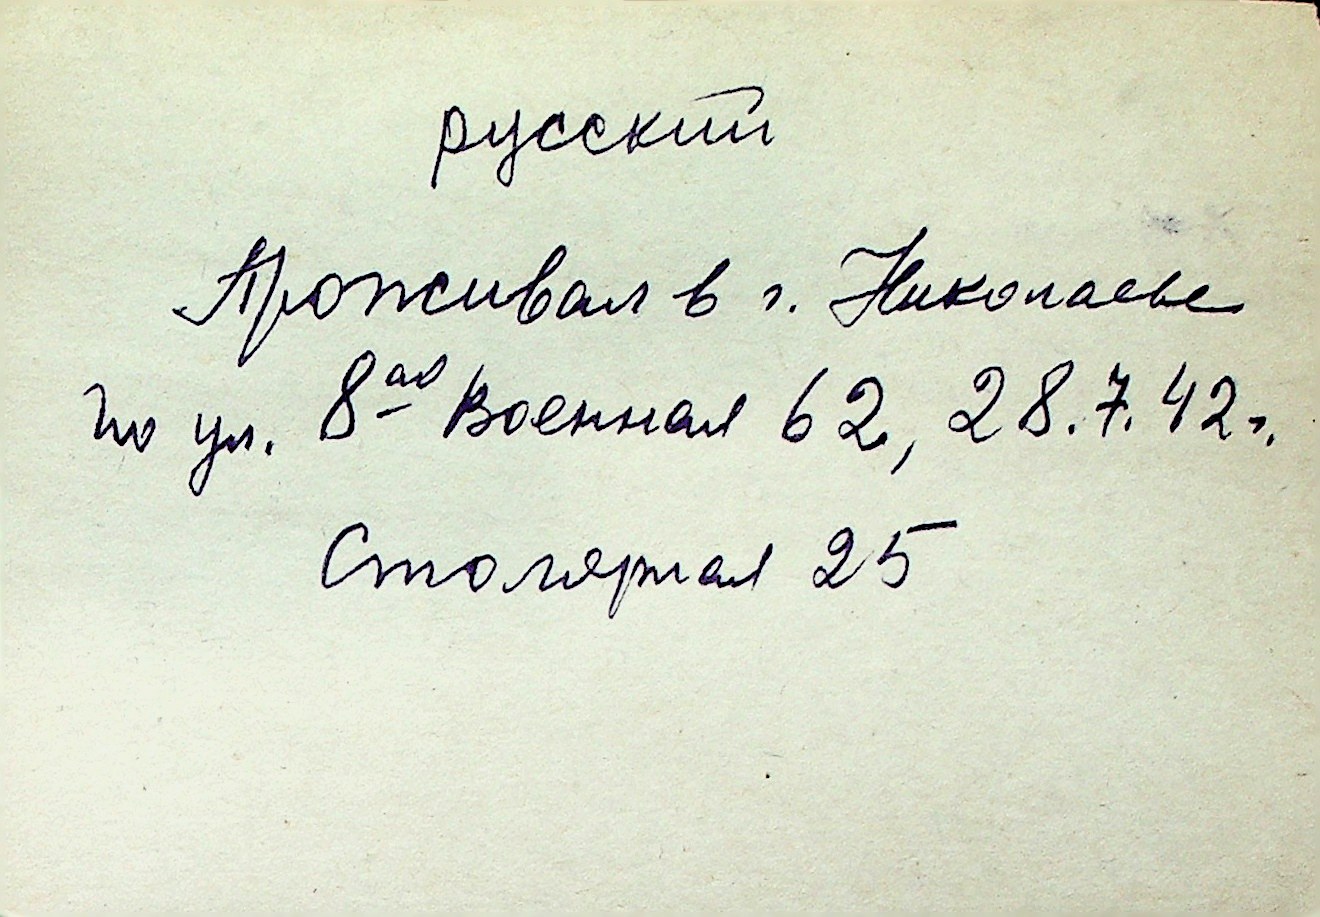 русский
Проживал в г. Николаеве
по ул. 8ая Военная 62, 28.7.42 г.
Столярная 25